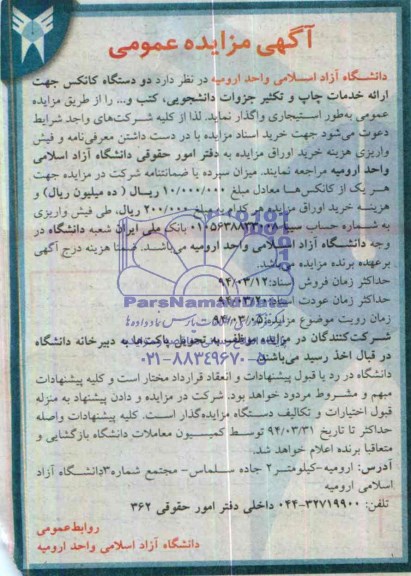 آگهی مزایده عمومی
دانشگاه آزاد اسلامی واحد ارومیه در نظر دارد دو دستگاه کانکس جهت
ارائه خدمات چاپ و تکثیر جزوات دانشجویی، کتب و... را از طریق مزایده
عمومی به‌طور استیجاری واگذار نماید. لذا از کلیه شرکت‌های واجد شرایط
دعوت می‌شود جهت خرید اسناد مزایده با در دست داشتن معرفی‌نامه و فیش
واریزی هزینه خرید اوراق مزایده به دفتر امور حقوقی دانشگاه آزاد اسلامی
واحد ارومیه مراجعه نمایند. میزان سپرده یا ضمانتنامه شرکت در مزایده جهت
هر یک از کانکس‌ها معادل مبلغ ۱۰/۰۰۰/۰۰۰ ریسال ( ده میلیون ریال) و
هزینه خرید اوراق مزایده هر کدام به مبلغ ۲۰۰/۰۰۰ ریال، طی فیش واریزی
به شماره حساب سیبا بانک ملی ایران شعبه دانشگاه در
وجه دانشگاه آزاد اسلامی واحد ارومیه می‌باشند. ضمنا هزینه درج آگهی
برعهده برنده مزایده می‌باشد.
حداکثر زمان فروش اسناد: ۹۴/۰۳/۱۲
حداکثر زمان عودت اسناد: ۹۴/۰۳/۲۰
زمان رویت موضوع مزایده:
ParsNamadData
شرکت‌کنندگان در مزایده موظف به تحویل پاکت‌ها به دبیرخانه دانشگاه
در قبال اخذ رسید می‌باشند.
۰۲۱-۸۸۳۴۹۶۷۰
دانشگاه در رد یا قبول پیشنهادات و انعقاد قرارداد مختار است و کلیه پیشنهادات
مبهم و مشروط مردود خواهد بود. شرکت در مزایده و دادن پیشنهاد به منزله
قبول اختیارات و تکالیف دستگاه مزایده‌گذار است. کلیه پیشنهادات واصله
حداکثر تا تاریخ ۹۴/۰۳/۳۱ توسط کمیسیون معاملات دانشگاه بازگشایی و
متعاقبا برنده اعلام خواهد شد.
آدرس: ارومیه-کیلومتر۲ جاده سلماس- مجتمع شماره۳دانشگاه آزاد
اسلامی ارومیه
تلفن: ۳۲۷۱۹۹۰۰-۰۴۴ داخلی دفتر امور حقوقی ۳۶۲
روابط‌عمومی
دانشگاه آزاد اسلامی واحد ارومیه